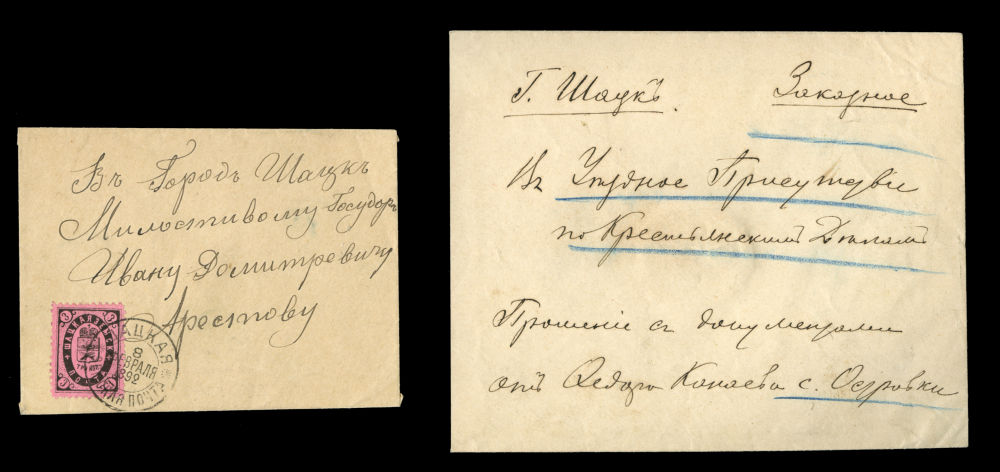 Въ Городъ Шацкъ
Милостивому Государ
Ивану Домитревичу
Арестову
3 3
ШАЦКАЯ ЗЕМСК
ПОЧТА
АЦКАЯ
8
ФЕВРАЛЯ
1892
ПОЧТА
Г. Шацкъ.
Заказное
Въ Уѣздное Присутствіе
по Крестьянскимъ Дѣламъ
Прошеніе съ документами
отъ Ѳедора Конаева с. Островки